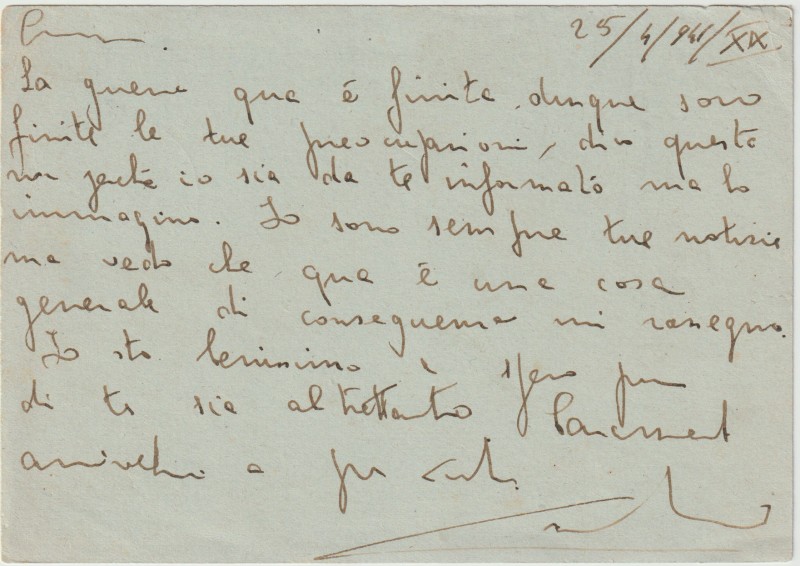 25/4/941/XIX
La guerra qua è finita, dunque sono
finite le tue preocupazioni, dico questo
non perché io sia da te informato ma lo
immagino. Io sono sempre tue notizie
ma vedo che qua è una cosa
generale di conseguenza mi rassegno.
Io sto benissimo e spero pure
di te sia altrettanto
arrivederci a